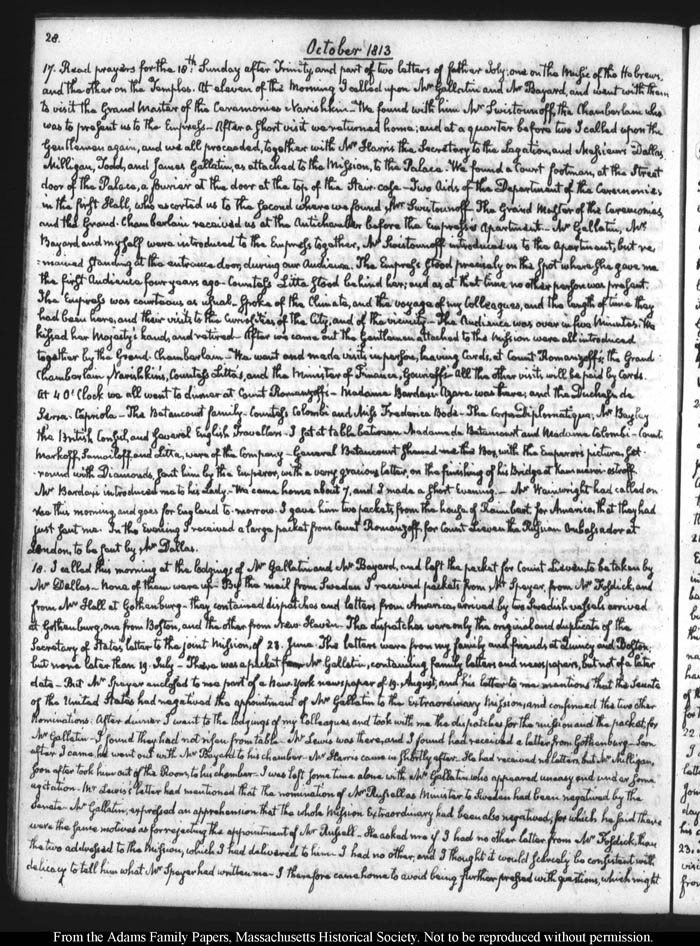 28.
October 1813
17. Read prayers for the 18th. Sunday after Trinity, and part of two letters of father Joly; one on the Music of the Hebrews,
and the other on the Temples. At eleven of the Morning I called upon Mr Gallatin and Mr Bayard, and went with them
to visit the Grand Master of the Ceremonies Narishkin — We found with him Mr Swistounoff, the Chamberlain who
was to present us to the Empress — After a short visit we returned home; and at a quarter before two I called upon the
Gentlemen again, and we all proceeded, together with Mr Harris the Secretary to the Legation, and Messieurs Dallas,
Milligan, Todd, and James Gallatin, as attached to the Mission, to the Palace. We found a Court footman, at the Street
door of the Palace, a furrier at the door at the top of the Stair-case — Two Aids of the Department of the Ceremonies
in the first Hall, who escorted us to the second where we found Mr Swistounoff. The Grand Master of the Ceremonies,
and the Grand-Chamberlain received us at the Antichamber before the Empress's Apartment. Mr Gallatin, Mr
Bayard and myself were introduced to the Empress together, Mr Swistounoff introduced us to the Apartment, but re-
-mained standing at the entrance door, during our Audience. The Empress stood precisely on the Spot where she gave me
the first Audience four years ago — Countess Litta stood behind her; and as at that time no other person was present.
The Empress was courteous as usual. Spoke of the Climate, and the voyage of my Colleagues, and the length of time they
had been here, and their visits to the Curiosities of the City, and of the vicinity — The Audience was over in five Minutes. We
kissed her Majesty's hand, and retired — After we came out the Gentlemen attached to the Mission were all introduced
together by the Grand-Chamberlain — We went and made visits in person, leaving Cards, at Count Romanzoff's; the Grand
Chamberlain Narishkin's, Countess Litta's, and the Minister of Finance, Gourieff's. All the other visits will be paid by Cards.
At 4 O'Clock we all went to dinner at Count Romanzoff's — Madame Bardaxi Azara was there; and the Duchess de
Serra-Capriola — The Betancourt family. Countess Colombi and Miss Frederica Bode — The Corps diplomatique, Mr Bayley
the British Consul, and several English Travellers — I sat at table between Madame de Betancourt and Madame Colombi — Count
Markoff, Samoiloff and Litta, were of the Company — General Betancourt shewed me this Box, with the Emperor's picture, set
round with Diamonds, sent him by the Emperor, with a very gracious letter, on the finishing of his Bridge at Kammenoi-ostroff.
Mr Bardaxi introduced me to his Lady — We came home about 7, and I made a short Evening. — Mr Wainwright had called on
me this morning, and goes for England to-morrow. I gave him two packets from the house of Rambast for America, that they had
just sent me. In the evening I received a large packet from Count Romanzoff, for Count Lieven the Russian Ambassador at
London, to be sent by Mr Dallas.
18. I called this morning at the lodgings of Mr Gallatin and Mr Bayard, and left the packet for Count Lieven to be taken by
Mr Dallas — None of them were up — By the mail from Sweden I received packets from Mr Speyer, from Mr Fosdick, and
from Mr Hall at Gothenburg — they contained dispatches and letters from America, arrived by two Swedish vessels arrived
at Gothenburg, one from Boston, and the other from New-Haven. The dispatches were only the original and duplicate of the
Secretary of State's letter to the joint Mission, of 23. June. The letters were from my family and friends at Quincy and Boston;
but none later than 19. July — There was a packet for Mr Gallatin, containing family letters and newspapers, but not of a later
date — But Mr Speyer enclosed to me part of a New-York newspaper of 19. August, and his letter to me mentions that the Senate
of the United States had negatived the appointment of Mr Gallatin to the Extraordinary Mission; and confirmed the two other
Nominations. After dinner I went to the lodgings of my Colleagues and took with me the dispatches for the mission and the packet for
Mr Gallatin — I found they had not risen from table. Mr Lewis was there, and I found had received a letter from Gothenburg — Soon
after I came, he went out with Mr Bayard to his chamber. Mr Harris came in shortly after. He had received no letters, but Mr Milligan,
soon after took him out of the Room, to his chamber. I was left some time alone with Mr Gallatin who appeared uneasy and under some
agitation — Mr Lewis's letter had mentioned that the nomination of Mr Russell as Minister to Sweden had been negatived by the
Senate. Mr Gallatin, expressed an apprehension that the whole Mission Extraordinary had been also negatived; for which he said there
were the same motives as for rejecting the appointment of Mr Russell. He asked me if I had no other letter from Mr Fosdick, than
the two addressed to the Mission, which I had delivered to him. I had no other, and I thought it would scarcely be consistent with
delicacy to tell him what Mr Speyer had written me — I therefore came home to avoid being further pressed with questions, which might
From the Adams Family Papers, Massachusetts Historical Society. Not to be reproduced without permission.